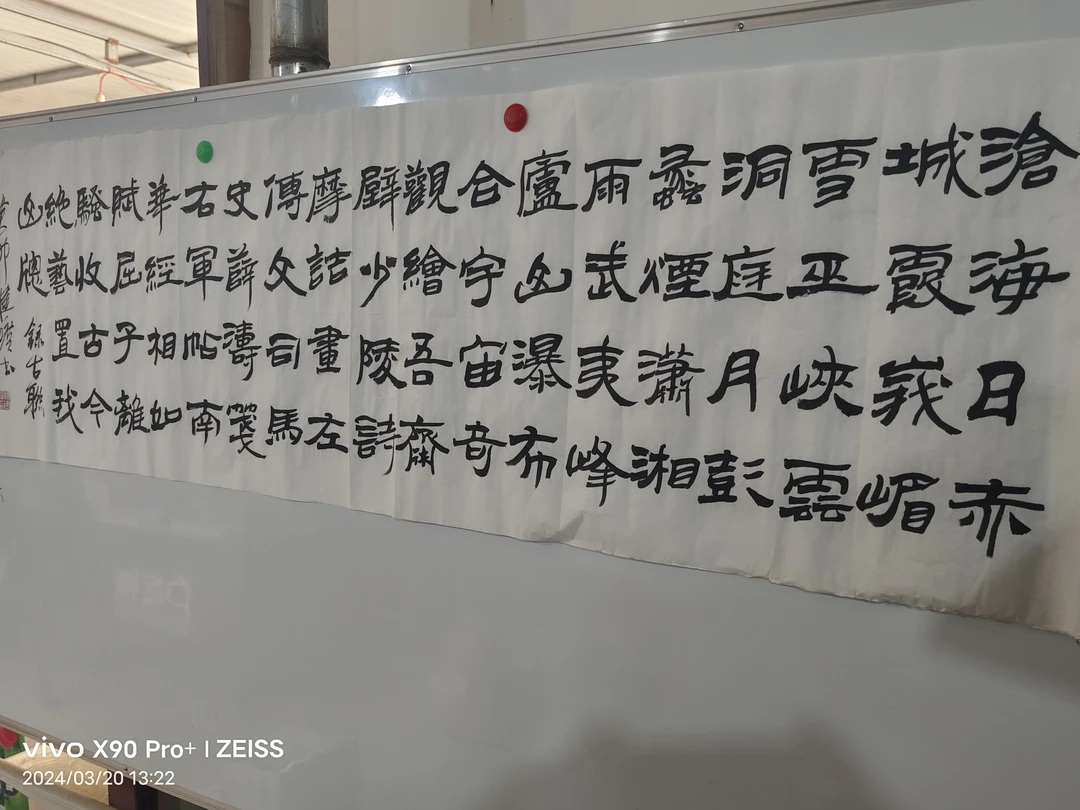 滄海日赤
城霞峩嵋
雪巫峽雲
洞庭月彭
蠡煙瀟湘
雨武夷峰
廬山瀑布
合宇宙奇
觀繪吾齋
壁少陵詩
摩詰畫左
傳文司馬
史薛濤箋
右軍帖南
華經相如
賦屈子離
騷收古今
絕藝置我
山牕 錄古聯
癸卯
vivo X90 Pro+ | ZEISS
2024/03/20 13:22